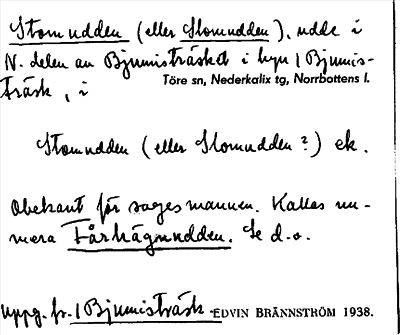 Stomudden (eller Slomudden), udde i
N. delen av Bjumisträsket i byn 1 Bjumis-
träsk, i Töre sn, Nederkalix tg, Norrbottens l.
Stomudden (eller Slomudden?) ek.
Obekant för sagesmannen. Kallas nu-
mera Fårhägnudden. Se d.o.
Uppg. fr. 1 Bjumisträsk EDVIN BRÄNNSTRÖM 1938.